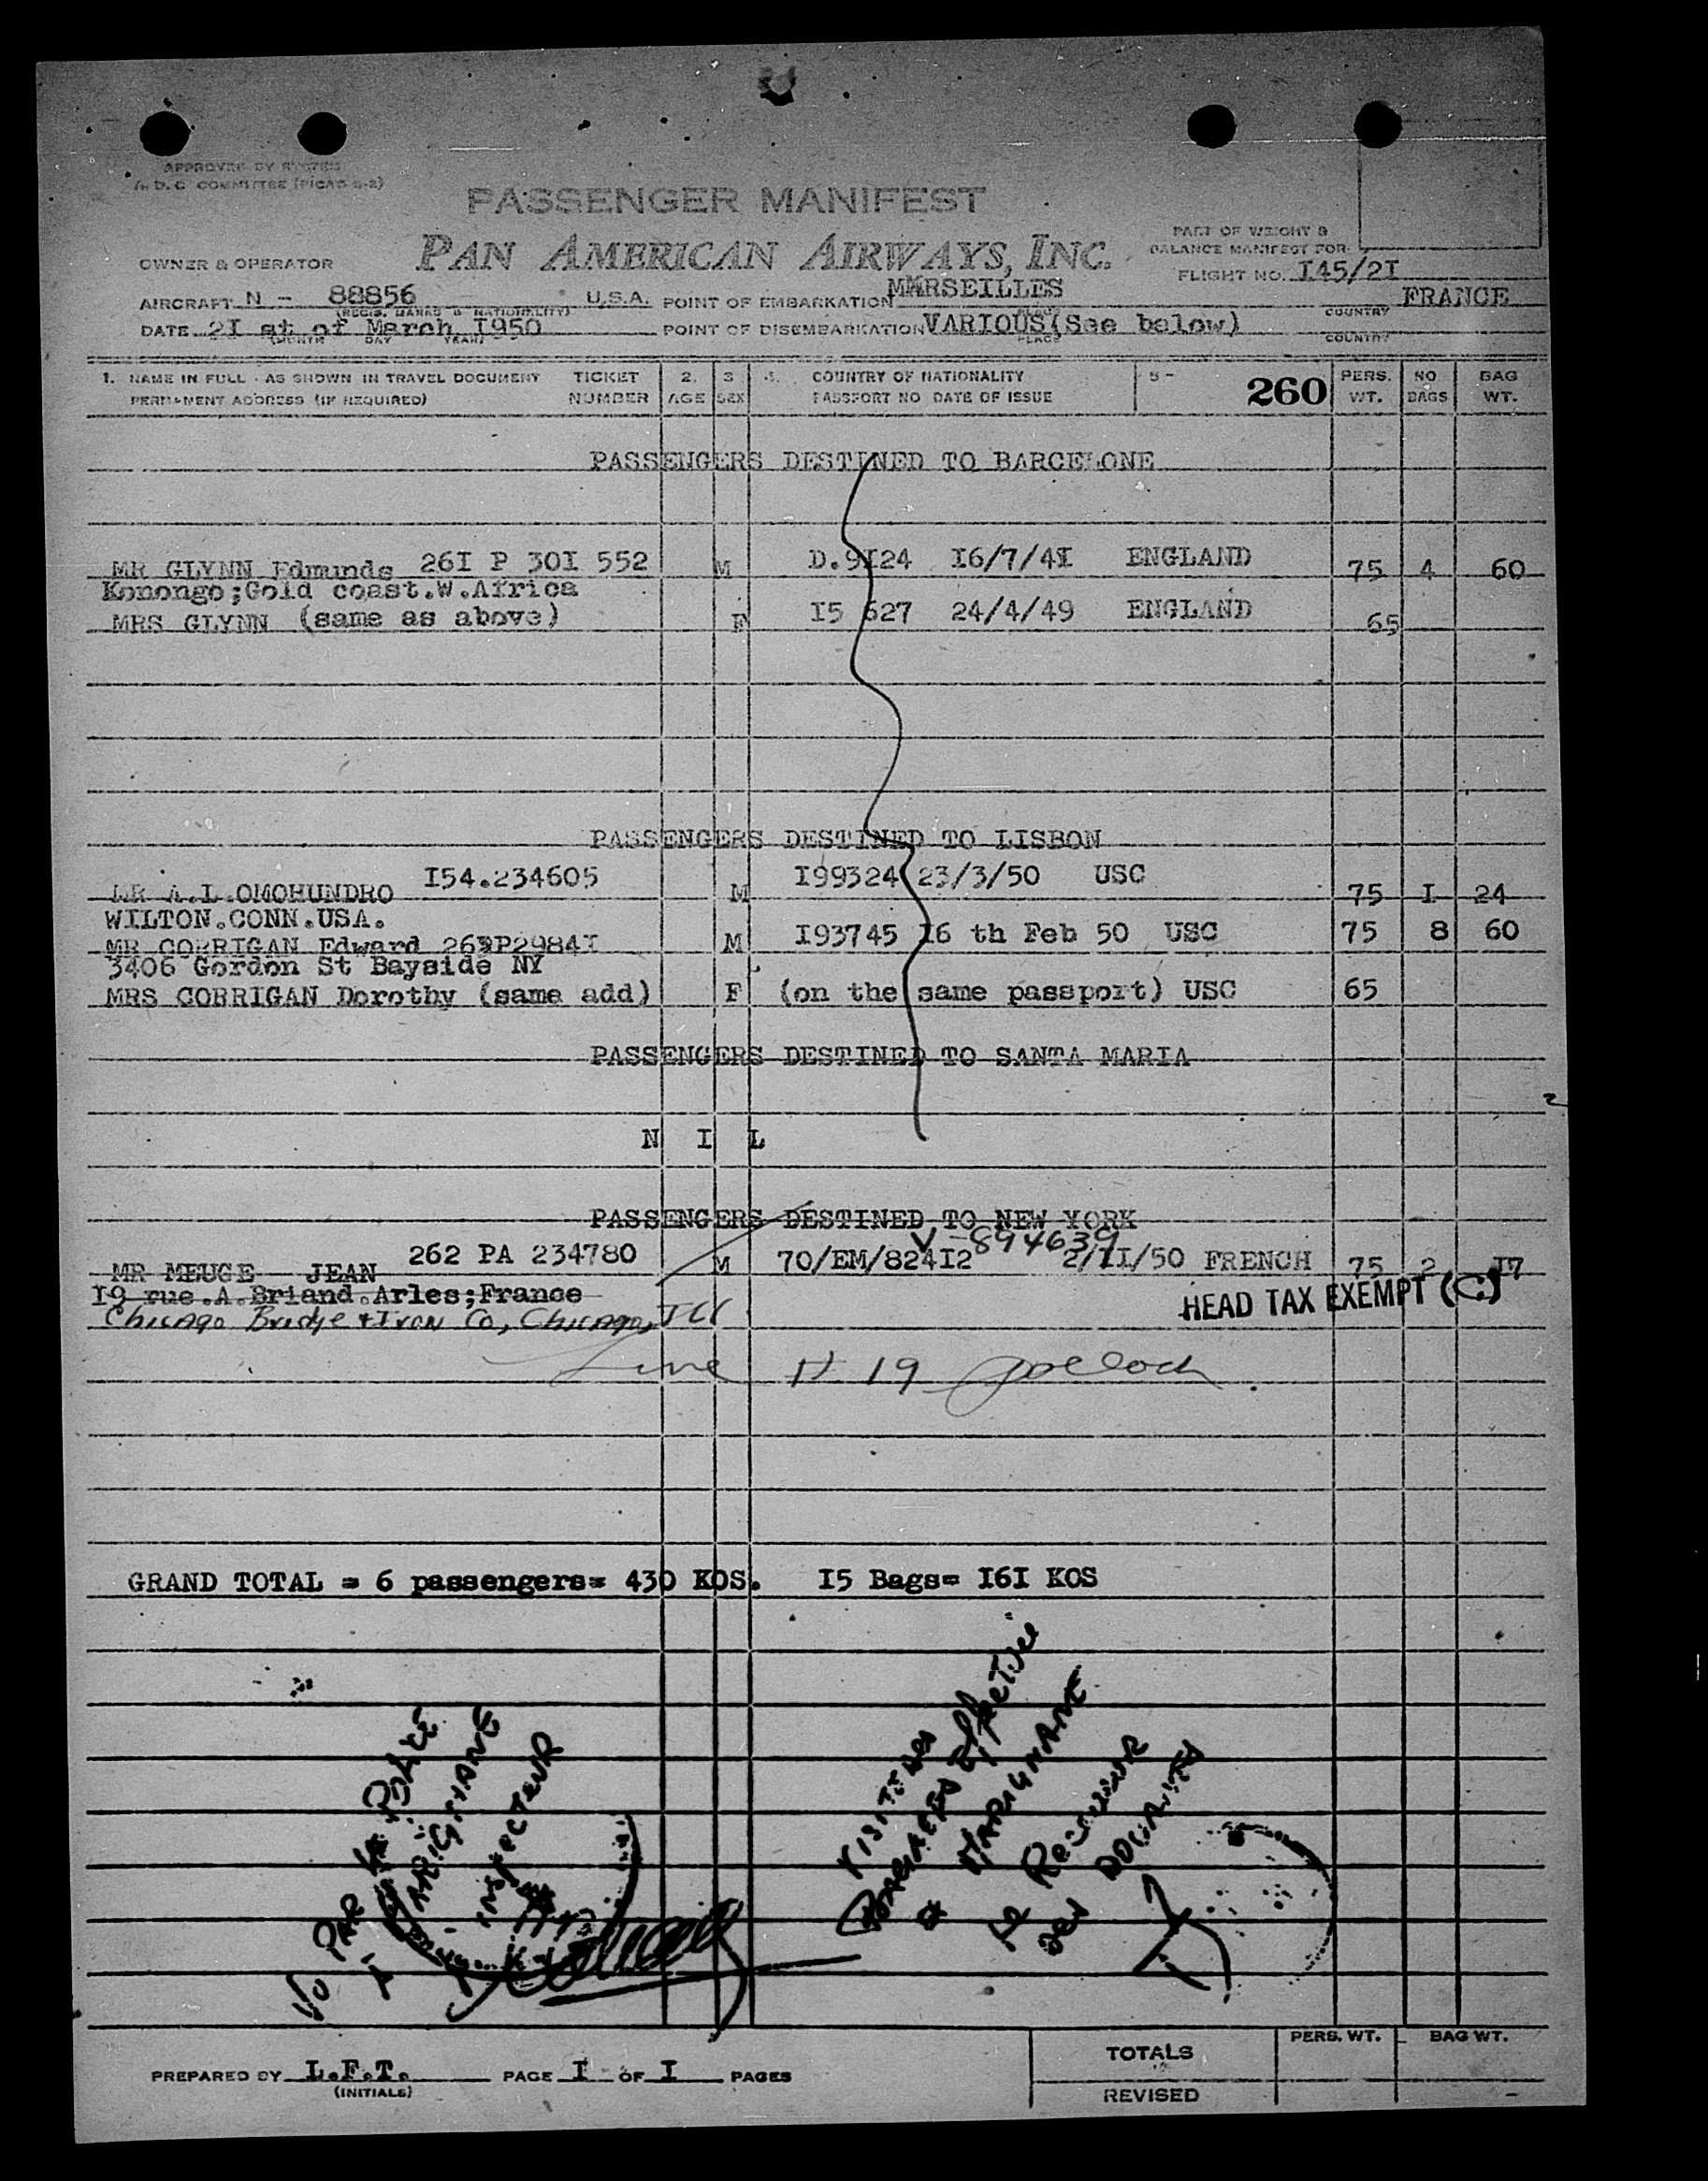 APPROVED BY
COMMITTEE
PASSENGER MANIFEST
PAN AMERICAN AIRWAYS, INC.
PART OF WEIGHT &
BALANCE MANIFEST FOR
FLIGHT NO. I45/2I
OWNER & OPERATOR
AIRCRAFT N - 88856 U.S.A. POINT OF EMBARKATION MARSEILLES FRANCE
(REGIS. MARKS & NATIONALITY) PLACE COUNTRY
DATE 2I st of March I950 POINT OF DISEMBARKATION VARIOUS(See below)
(MONTH DAY YEAR) PLACE COUNTRY
1. NAME IN FULL - AS SHOWN IN TRAVEL DOCUMENT TICKET 2. 3 4. COUNTRY OF NATIONALITY 5 - 260 PERS. NO BAG
PERMANENT ADDRESS (IF REQUIRED) NUMBER AGE SEX PASSPORT NO DATE OF ISSUE WT. BAGS WT.
PASSENGERS DESTINED TO BARCELONE
MR GLYNN Edmunds 26I P 30I 552 M D.9I24 I6/7/4I ENGLAND 75 4 60
Konongo;Gold coast.W.Africa
MRS GLYNN (same as above) F I5 627 24/4/49 ENGLAND 65
PASSENGERS DESTINED TO LISBON
MR A.L.OMOHUNDRO I54.234605 M I99324 23/3/50 USC 75 I 24
WILTON.CONN.USA.
MR CORRIGAN Edward M I93745 I6 th Feb 50 USC 75 8 60
3406 Gordon St Bayside NY
MRS CORRIGAN Dorothy (same add) F (on the same passport) USC 65
PASSENGERS DESTINED TO SANTA MARIA
N I L
PASSENGERS DESTINED TO NEW YORK
V-894639
MR MEUGE JEAN 262 PA 234780 M 70/EM/824I2 2/II/50 FRENCH 75 2 I7
I9 rue.A.Briand.Arles;France
HEAD TAX EXEMPT (C)
Chicago Bridge & Iron Co, Chicago, Ill
Line # 19
GRAND TOTAL = 6 passengers= 430 KOS. I5 Bags= I6I KOS
VU PAR LA POLICE
MARIGNANE
L'INSPECTEUR
VISITE DES
BAGAGES Effectuée
à MARIGNANE
Le Receveur
DES DOUANES
PREPARED BY L.F.T. PAGE I OF I PAGES
(INITIALS)
PERS. WT. BAG WT.
TOTALS
REVISED